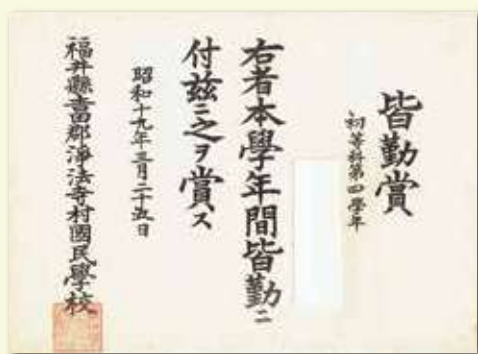 皆勤賞
初等科第四學年
右者本學年間皆勤ニ
付茲ニ之ヲ賞ス
昭和十九年三月二十五日
福井縣吉田郡淨法寺村國民學校